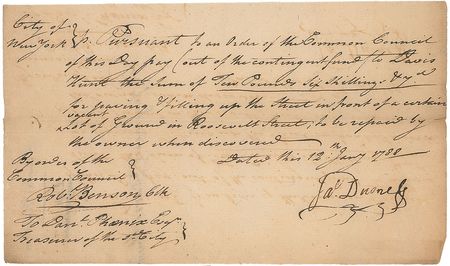 City of
New York } ss. Pursuant to an Order of the Common Council
of this Day pay (out of the contingent fund) to Davis
Hunt the Sum of Ten Pounds Six Shillings &
for paving & filling up the Street in front of a certain
vacant
Lot of Ground in Roosevelt Street; to be repaid by
the owner when discovered
Dated this 12th Jany 1788
By order of the
Common Council
Robt Benson Clk
Jas. Duane
To Danl. Phœnix Esqr
Treasurer of the sd. City